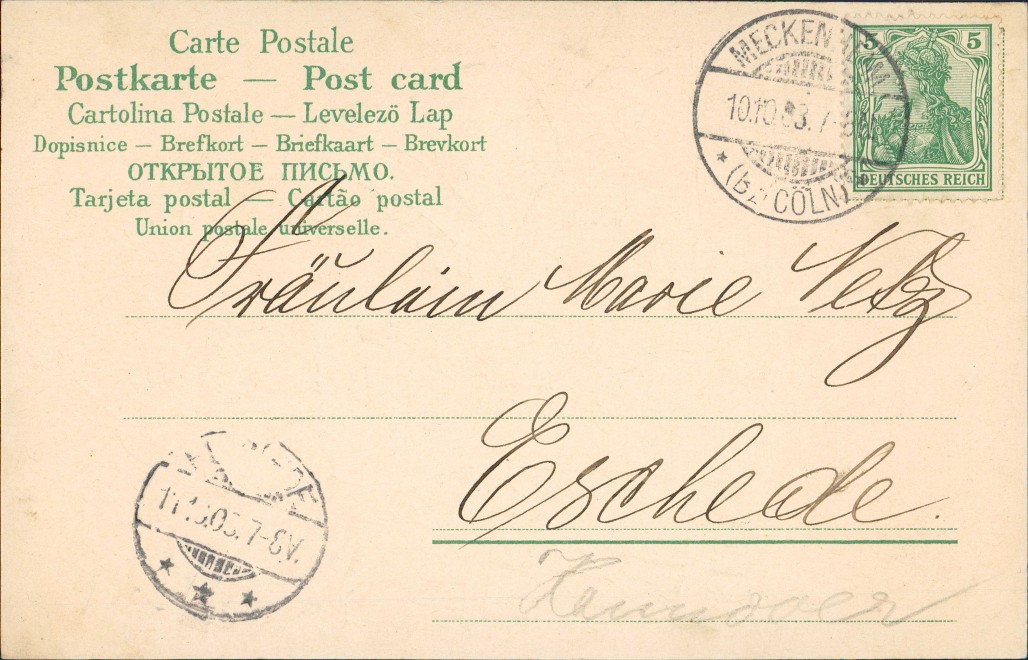 Carte Postale
Postkarte — Post card
Cartolina Postale — Levelező Lap
Dopisnice — Brefkort — Briefkaart — Brevkort
ОТКРЫТОЕ ПИСЬМО.
Tarjeta postal — Cartão postal
Union postale universelle.
MECKEN
(bz CÖLN)
5 5
DEUTSCHES REICH
Fräulein Marie Netz
Eschede.
Hannover